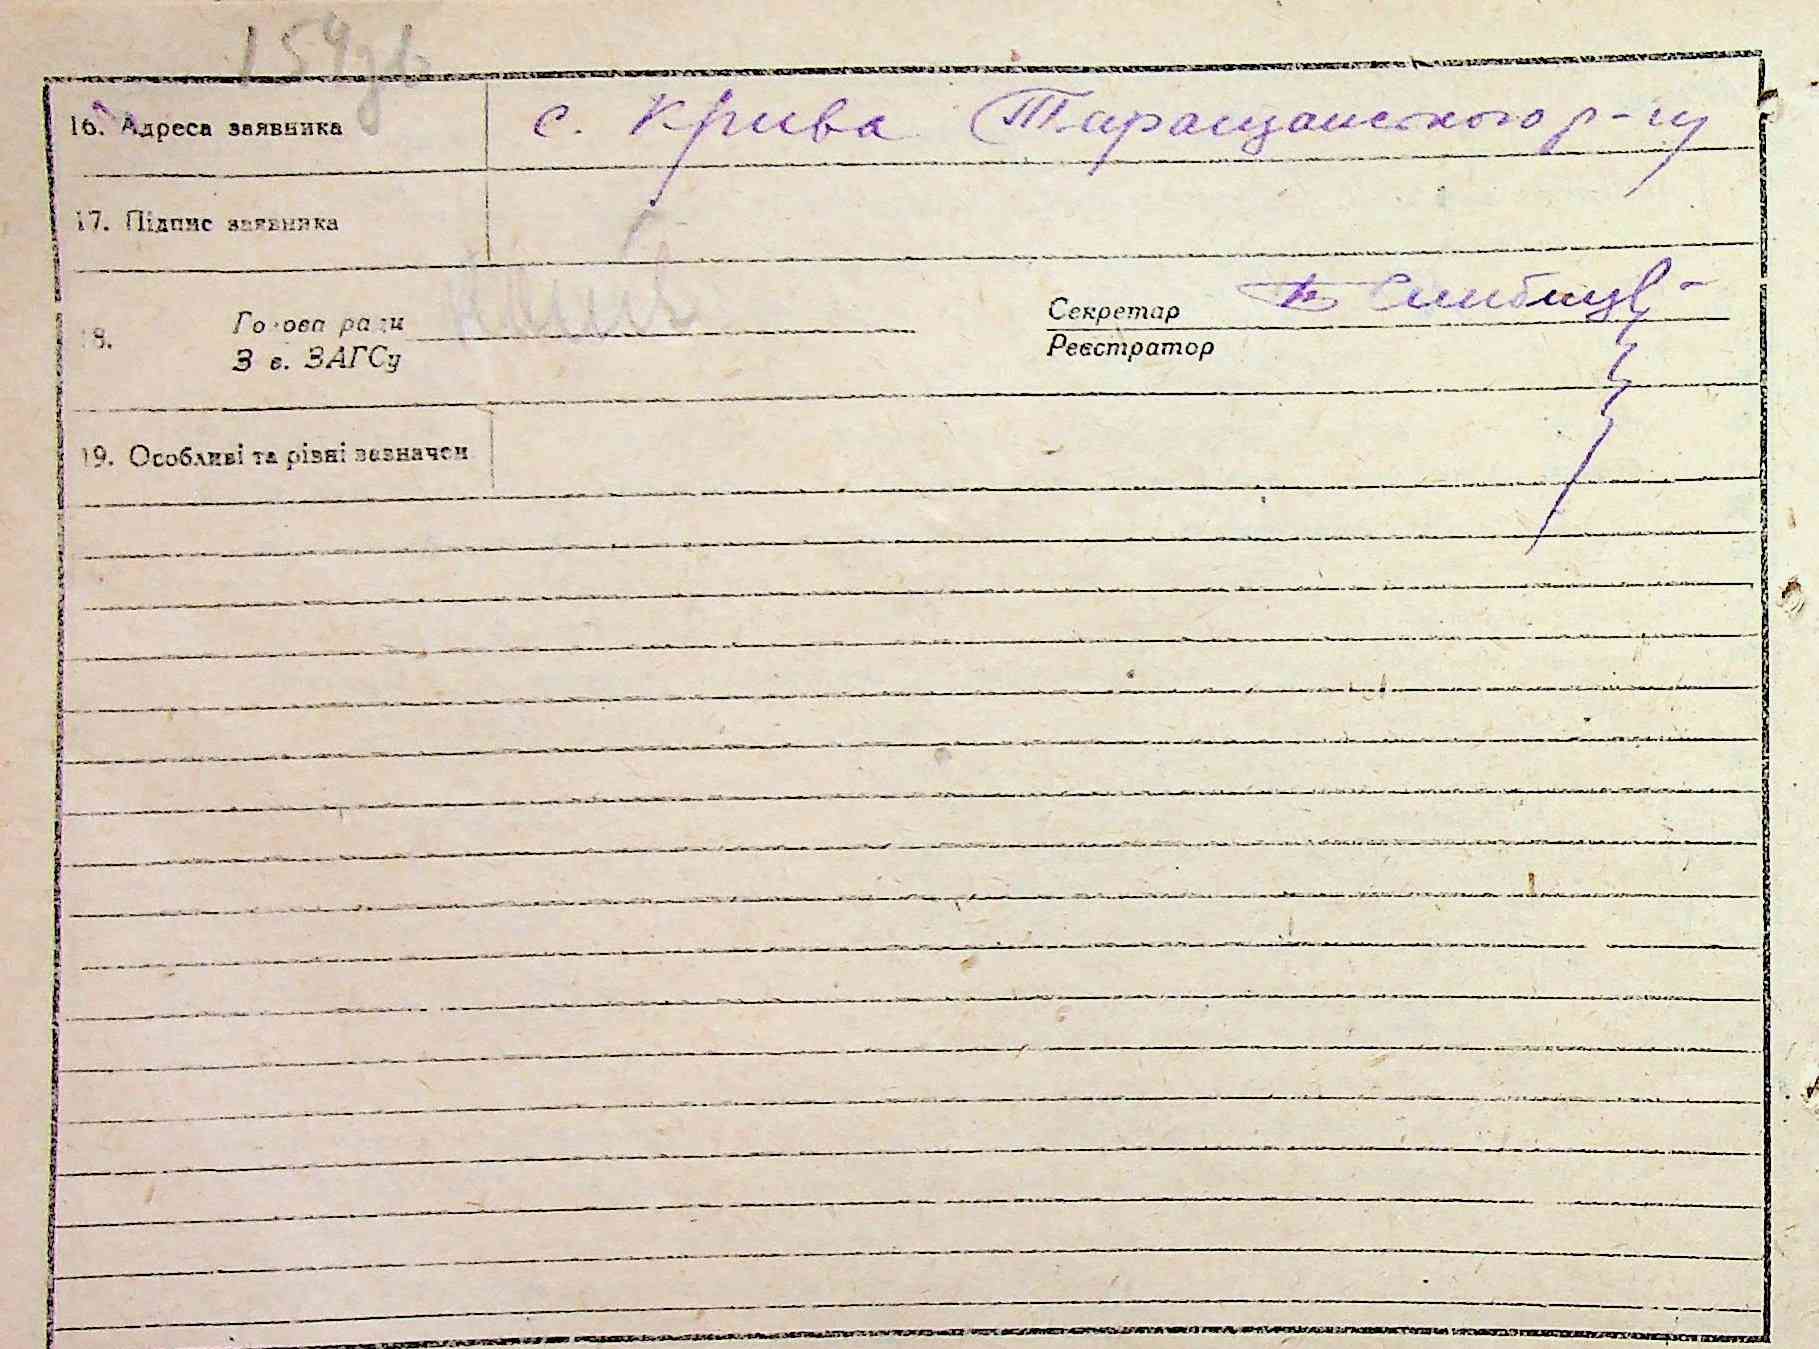 154зв
16. Адреса заявника с. Крива Таращанського р-ну
17. Підпис заявника
18. Голова ради Секретар
З в. ЗАГСу Реєстратор
19. Особливі та різні зазначен